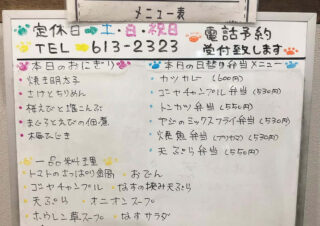 メニュー表
定休日→土・日・祝日
TEL→613-2323
電話予約
受付致します
本日のおにぎり
焼き明太子
さけとちりめん
桜えびと塩こんぶ
まぐろと の佃煮
梅 ひじき
本日の日替り弁当メニュー
カツカレー (600円)
ゴーヤチャンプル弁当 (530円)
トンカツ弁当 (550円)
アジのミックスフライ弁当 (530円)
焼魚弁当 (530円)
天ぷら弁当 (550円)
一品料理
トマトのさっぱり おでん
ゴーヤチャンプル なすの挟み天ぷら
天ぷら オニオンスープ
ホウレン草スープ なすサラダ